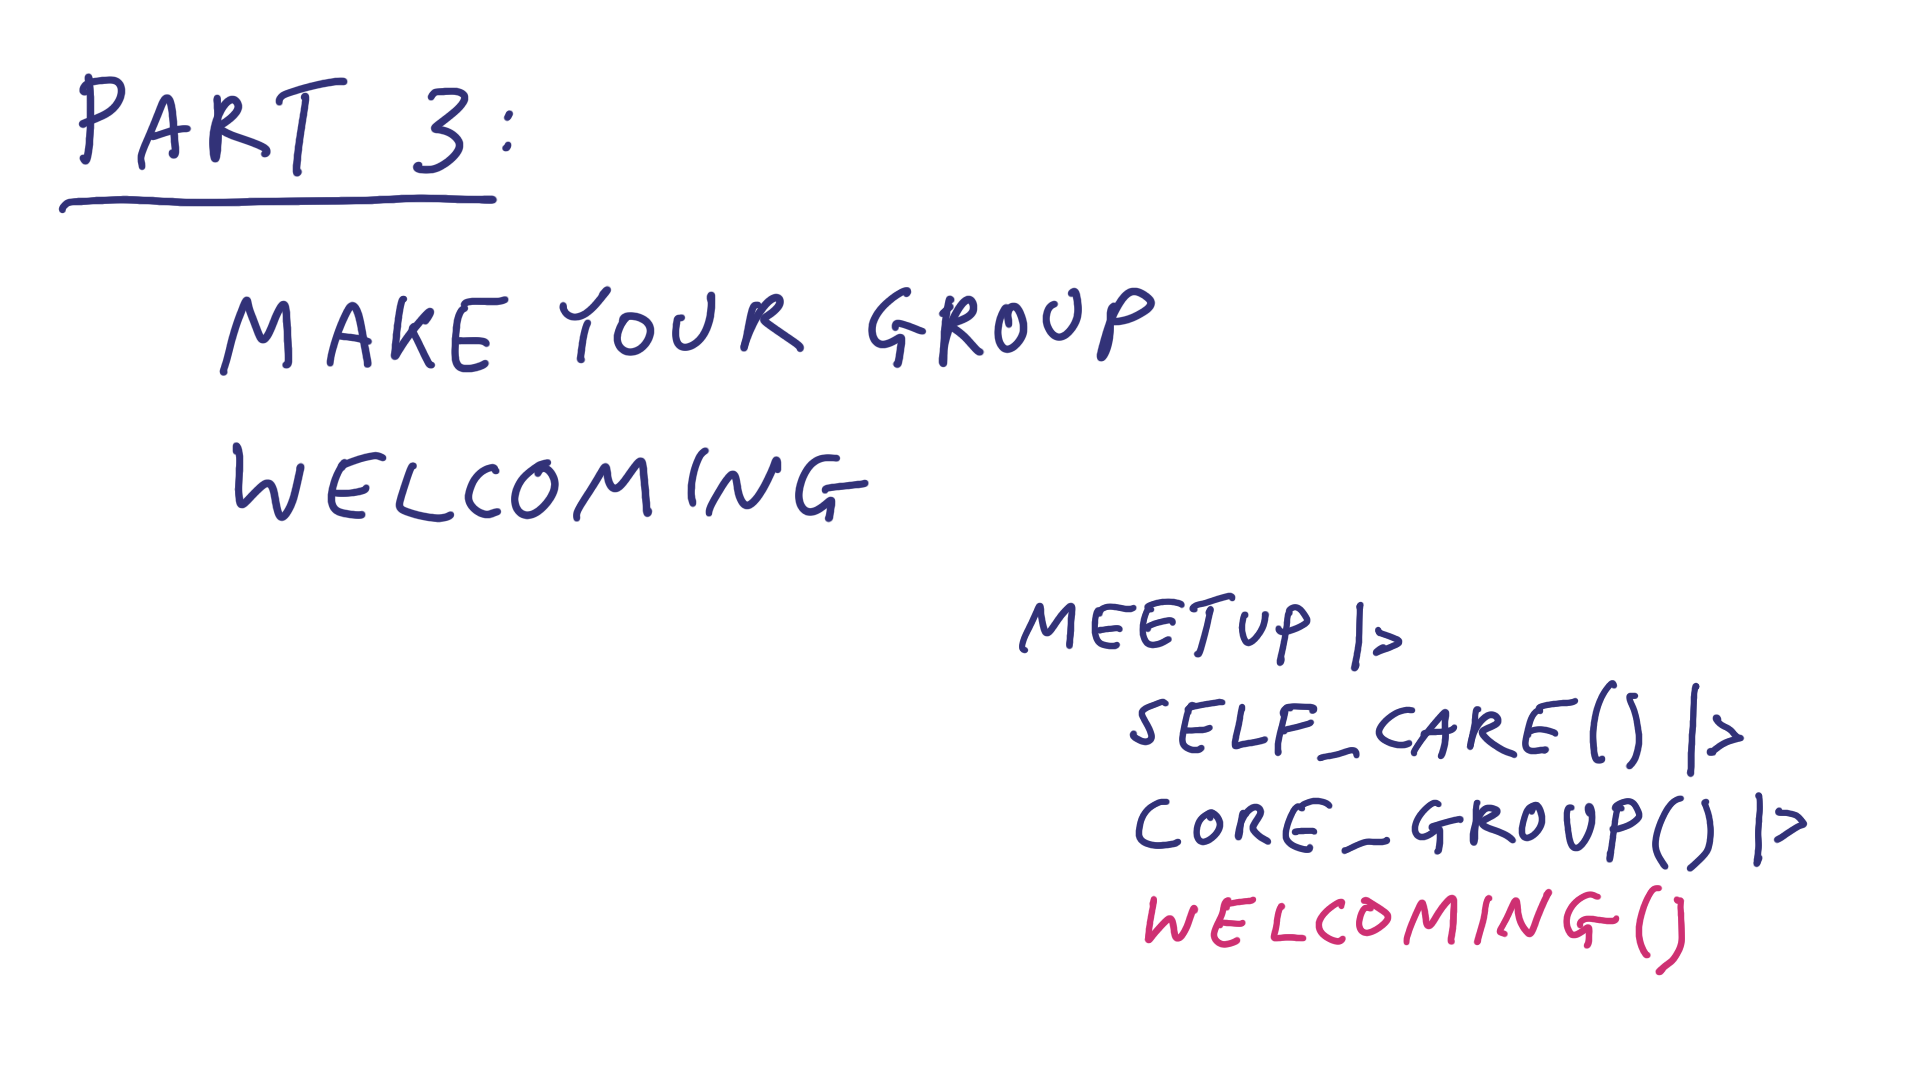 PART 3:
MAKE YOUR GROUP
WELCOMING
MEETUP |>
SELF_CARE() |>
CORE_GROUP() |>
WELCOMING()